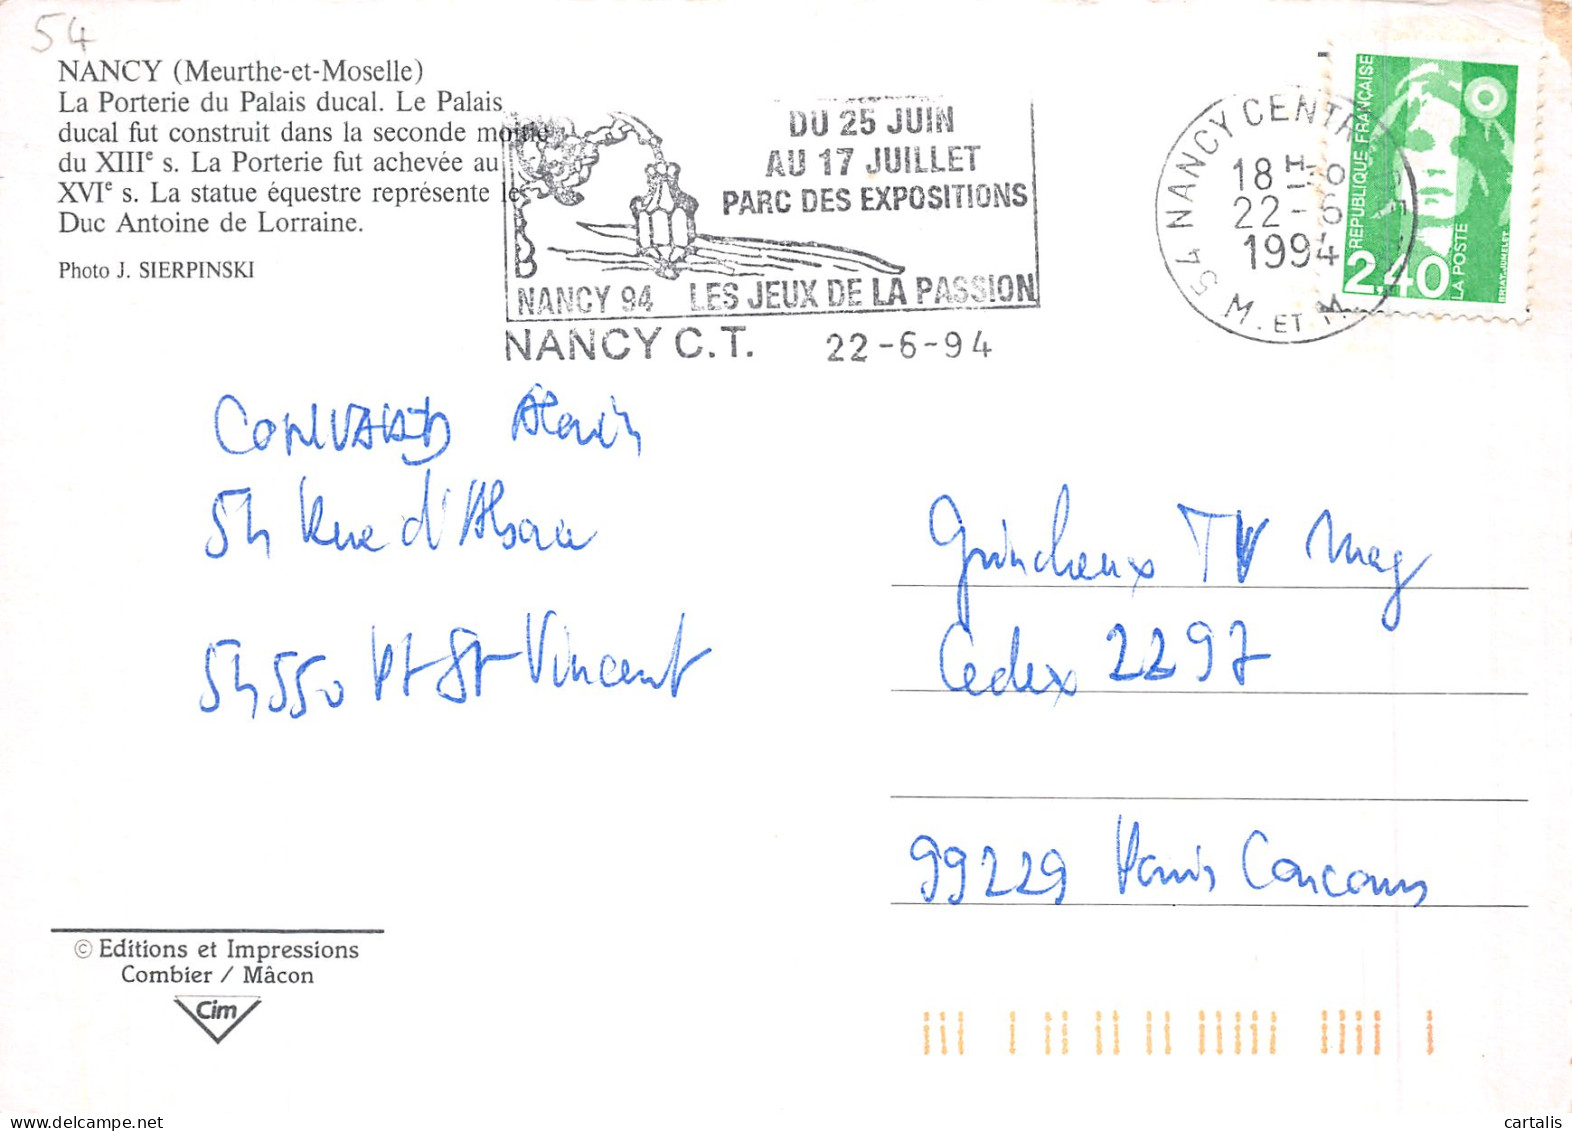 54
NANCY (Meurthe-et-Moselle)
La Porterie du Palais ducal. Le Palais
ducal fut construit dans la seconde moitié
du XIIIe s. La Porterie fut achevée au
XVIe s. La statue équestre représente le
Duc Antoine de Lorraine.
Photo J. SIERPINSKI
DU 25 JUIN
AU 17 JUILLET
PARC DES EXPOSITIONS
NANCY 94 LES JEUX DE LA PASSION
NANCY C.T. 22-6-94
54 NANCY CENTR
18H
22-6
1994
M. ET M.
RÉPUBLIQUE FRANÇAISE
2,40
LA POSTE
BRIAT-JUMELET
Alain
54 Rue d'Alsace
54550 Pt St Vincent
Grincheux TV Mag
Cedex 2297
99229 Paris Concours
© Editions et Impressions
Combier / Mâcon
Cim
delcampe.net
cartalis